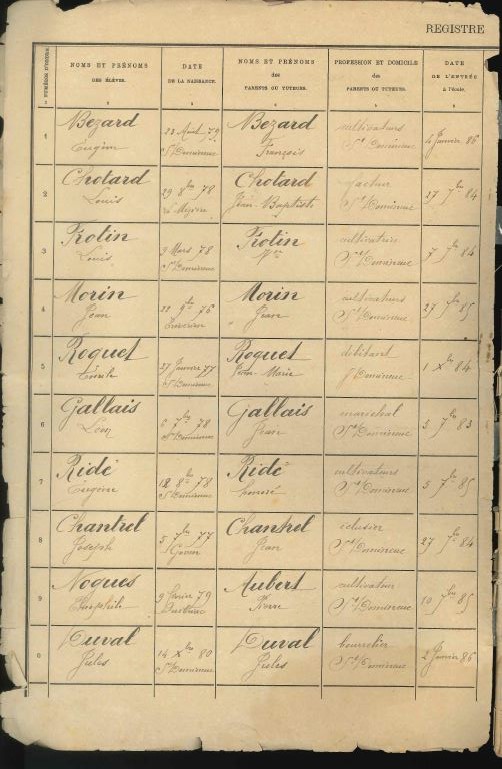 REGISTRE
NUMÉROS D'ORDRE
NOMS ET PRÉNOMS
DES ÉLÈVES.
DATE
DE LA NAISSANCE.
NOMS ET PRÉNOMS
des
PARENTS OU TUTEURS.
PROFESSION ET DOMICILE
des
PARENTS OU TUTEURS.
DATE
DE L'ENTRÉE
à l'école.
1 2 3 4 5 6
1
Bezard
Eugène
23 Août 79
St Domineuc
Bezard
François
cultivateurs
St Domineuc
4 Janvier 86
2
Chotard
Louis
29 8bre 78
Chotard
Jean-Baptiste
facteur
St Domineuc
27 7bre 84
3
Trotin
Louis
9 Mars 78
St Domineuc
Trotin
Vve
cultivatrice
St Domineuc
7 7bre 84
4
Morin
Jean
22 9bre 76
Morin
Pierre
cultivateurs
St Domineuc
27 7bre 85
5
Roquet
27 Janvier 77
St Domineuc
Roquet
Jean-Marie
débitant
St Domineuc
1 Xbre 84
6
Gallais
Léon
6 7bre 78
St Domineuc
Gallais
Jean
maréchal
St Domineuc
3 7bre 83
7
Ridé
Eugène
12 8bre 78
St Domineuc
Ridé
cultivateurs
St Domineuc
5 7bre 85
8
Chantrel
Joseph
5 7bre 77
Chantrel
Jean
éclusier
St Domineuc
27 7bre 84
9
Nogues
Théophile
9 Février 79
Québriac
Aubert
Pierre
cultivateur
St Domineuc
10 7bre 85
Duval
Jules
14 Xbre 80
St Domineuc
Duval
Jules
bourrelier
St Domineuc
2 Janvier 86